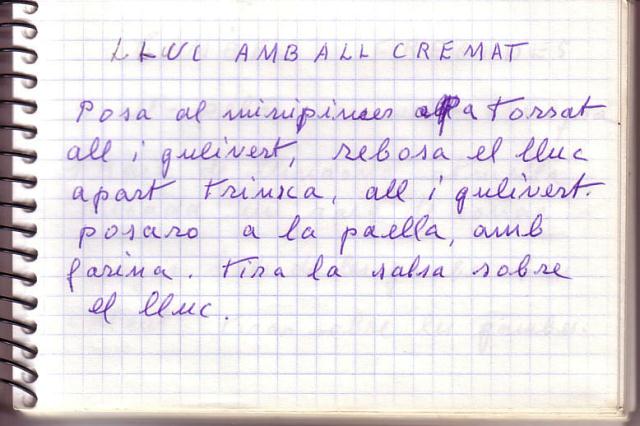 LLUC AMB ALL CREMAT
Posa al minipimer pa torrat
all i gulivert, rebosa el lluc
apart trinxa, all i gulivert.
posaro a la paella, amb
farina. tira la salsa sobre
el lluc.